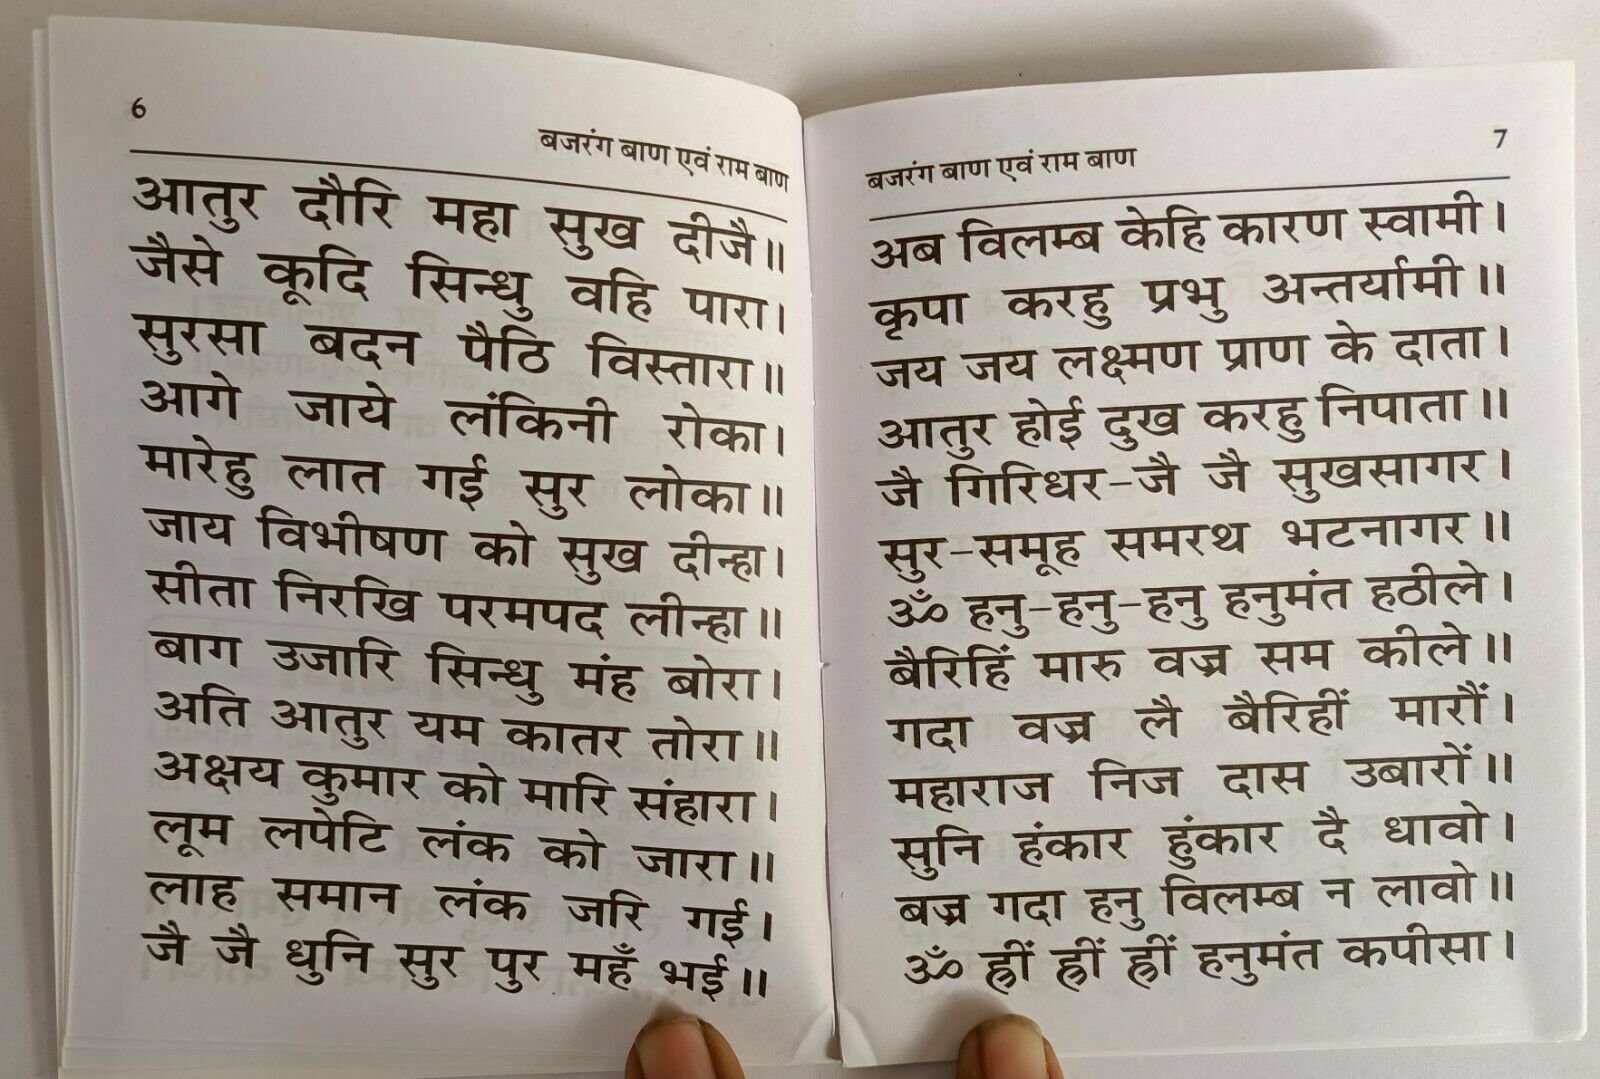 6
बजरंग बाण एवं राम बाण
आतुर दौरि महा सुख दीजै॥
जैसे कूदि सिन्धु वहि पारा।
सुरसा बदन पैठि विस्तारा॥
आगे जाये लंकिनी रोका।
मारेहु लात गई सुर लोका॥
जाय विभीषण को सुख दीन्हा।
सीता निरखि परमपद लीन्हा॥
बाग उजारि सिन्धु मंह बोरा।
अति आतुर यम कातर तोरा॥
अक्षय कुमार को मारि संहारा।
लूम लपेटि लंक को जारा॥
लाह समान लंक जरि गई।
जै जै धुनि सुर पुर महँ भई॥
7
बजरंग बाण एवं राम बाण
अब विलम्ब केहि कारण स्वामी।
कृपा करहु प्रभु अन्तर्यामी॥
जय जय लक्ष्मण प्राण के दाता।
आतुर होई दुख करहु निपाता॥
जै गिरिधर-जै जै सुखसागर।
सुर-समूह समरथ भटनागर॥
ॐ हनु-हनु-हनु हनुमंत हठीले।
बैरिहिं मारु वज्र सम कीले॥
गदा वज्र लै बैरिहीं मारौं।
महाराज निज दास उबारों॥
सुनि हंकार हुंकार दै धावो।
बज्र गदा हनु विलम्ब न लावो॥
ॐ ह्रीं ह्रीं ह्रीं हनुमंत कपीसा।